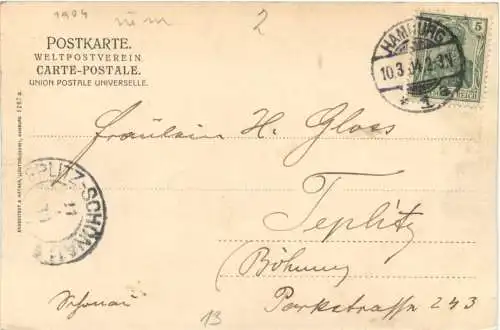 1904
2
POSTKARTE.
WELTPOSTVEREIN
CARTE-POSTALE.
UNION POSTALE UNIVERSELLE.
HAMBURG
10.3.04.2-3N.
* 1 a
5
REICH
Fräulein H. Gloss
TEPLITZ-SCHÖNAU
11
Teplitz
(Böhmen)
Schönau
Parkstrasse 243
13